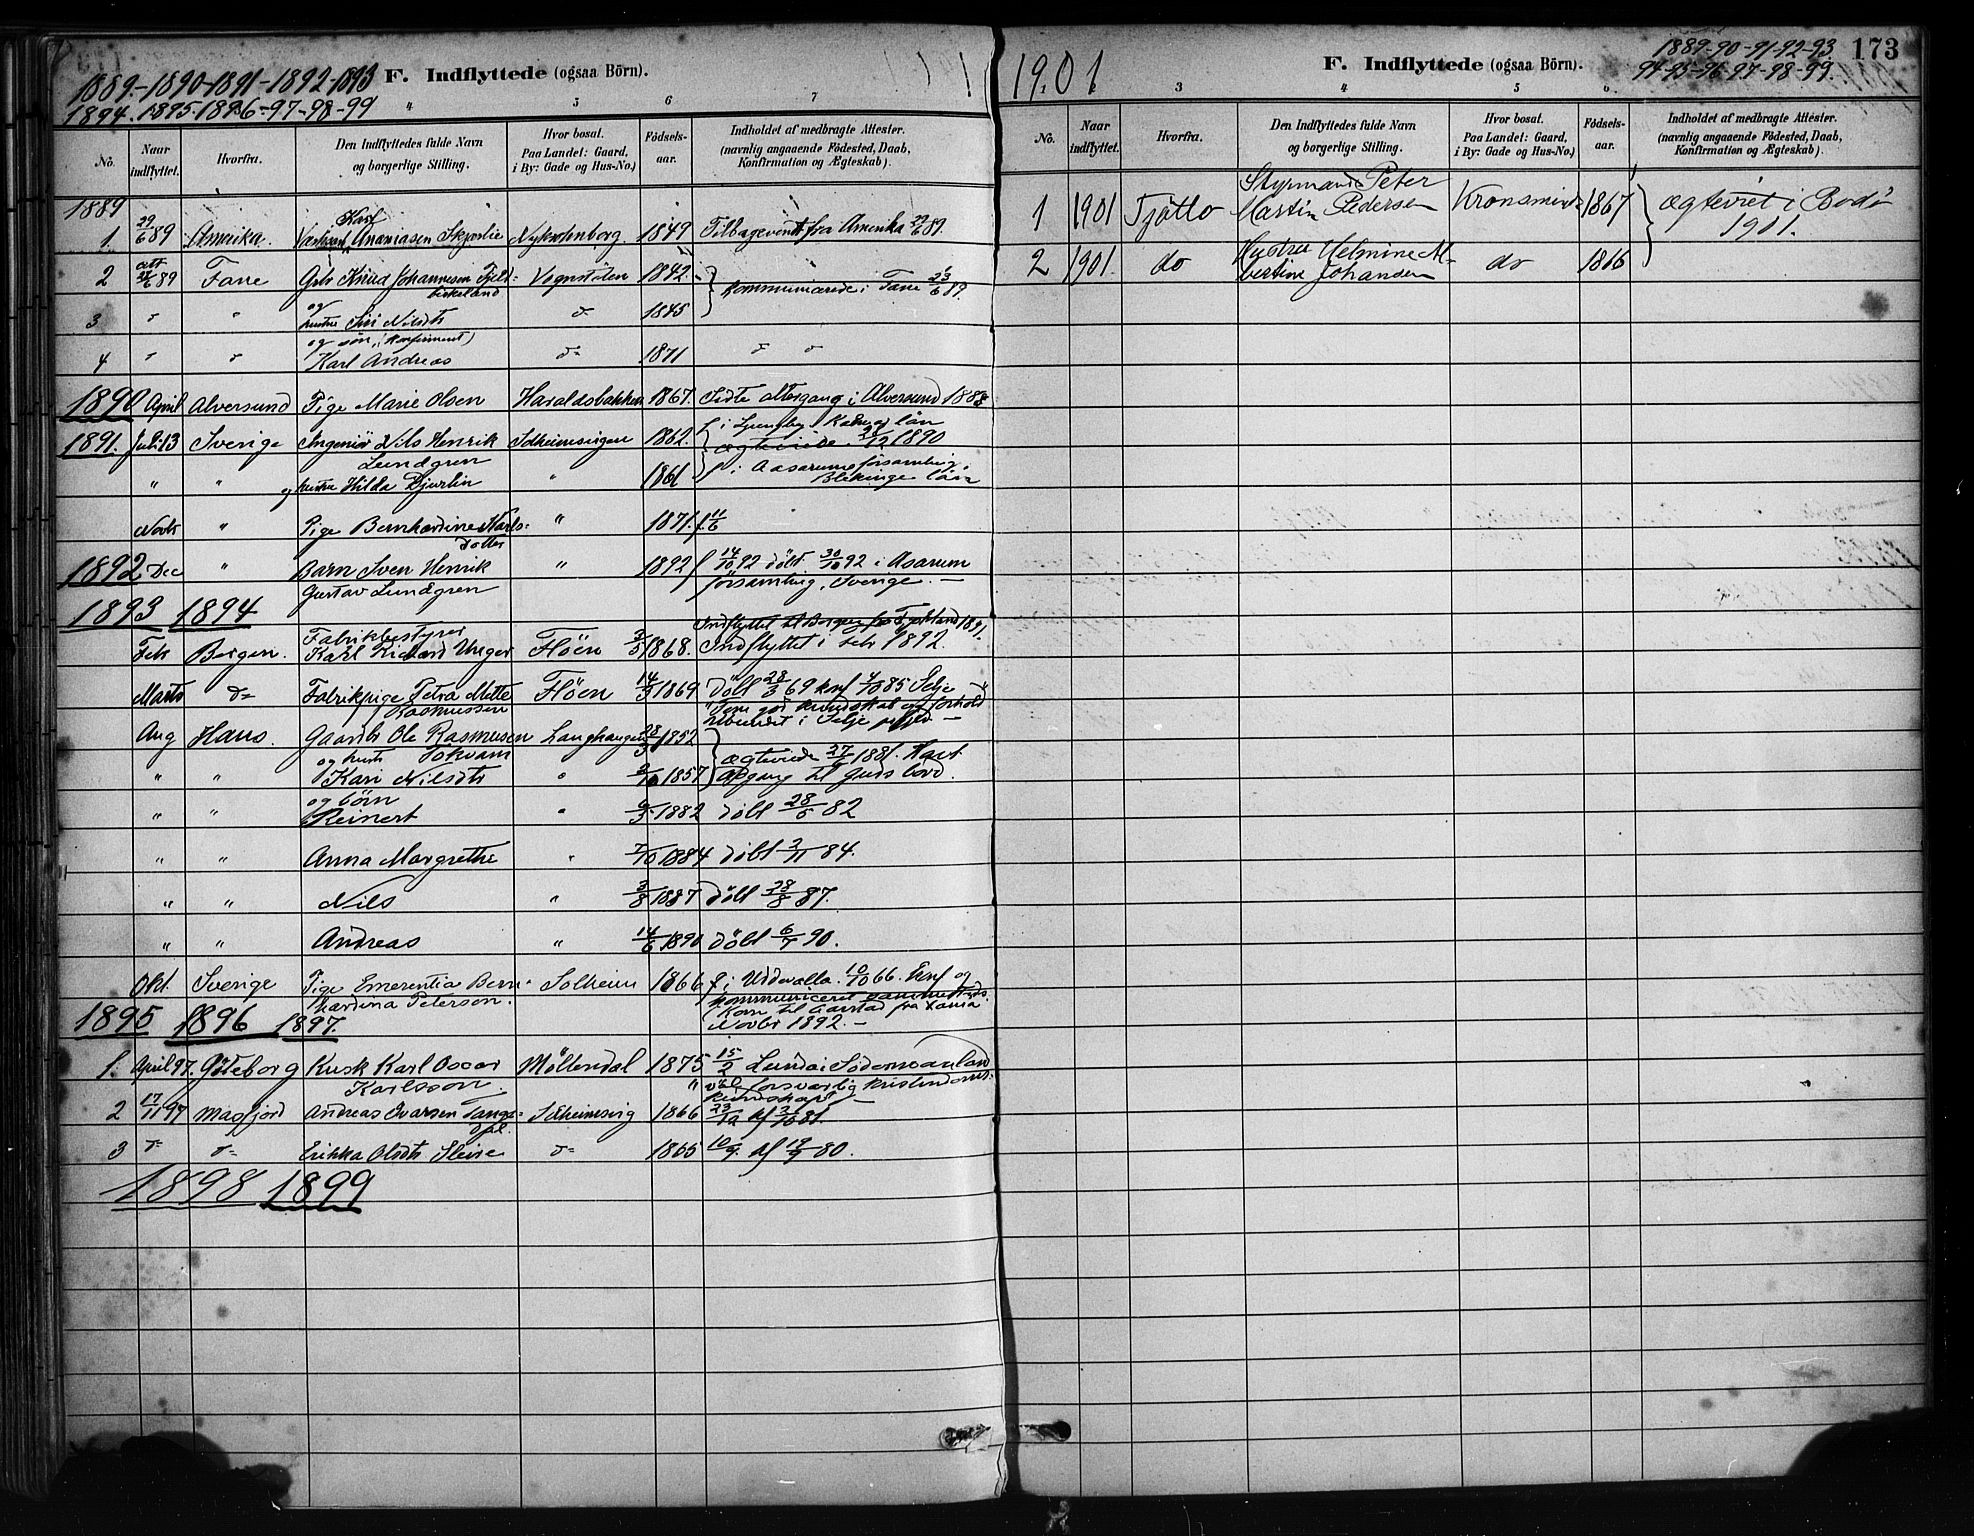 1889-1890-1891-1892-1893
1894-1895-1896-97-98-99
F. Indflyttede (ogsaa Börn).
4 5 6 7
No. Naar indflyttet. Hvorfra. Den Indflyttedes fulde Navn og borgerlige Stilling. Hvor bosat. Paa Landet: Gaard, i By: Gade og Hus-No.) Födsels-aar. Indholdet af medbragte Attester. (navnlig angaaende Födested, Daab, Konfirmation og Ægteskab).
1889
1. 29/6 89 Amerika. Karl Ananiasen Skjærlie 1849 Tilbagevendt fra Amerika 29/6 89.
2 89 Fane Gbr Knud Johannesen Fjeld- Vognstölen 1842
birkeland kommunicerede i Fane 23/6 89.
3 " " og hustru Siri Nilsdtr do 1845
og søn, (konfirment)
4 " " Karl Andreas do 1871 " "
1890 April Alversund Pige Marie Olsen Haraldsbakken 1867. Sidste altergang i Alversund 1888
1891. Juli 13 Sverige Ingeniör Nils Henrik Solheimsvigen 1862. f i län
Lundgren ægteviede 1890
" " og hustru Hilda Djurlin " 1861 f i Aasarums församling,
Blekinge län
Novbr " Pige Bernhardine Karls- " 1871. f. 11/6
dotter
1892 Dec " Barn Sven Henrik " 1892 f 14/10 92 döbt 30/10 92 i Asarum
Gustav Lundgren församling, Sverige. —
1893 1894
Fabrikbestyrer Indflyttet til Bergen fra Tyskland 1891.
Feb Bergen. Karl Richard Unger Flöen 3/5 1868. Indflyttet i 1892.
Marts do Fabrikpige Petra Mette Flöen 14/3 1869 Döbt 28/3 69 knf 4/10 85 Selje
Rasmussen "Den god kundskab og forhold"
ubundet i Selje pgjld. —
Aug Haus. Gaardb. Ole Rasmusen Langhaugen 1852
og hustr Tokvam ægteviede 27/ 1881. Havt
" " Kari Nilsdtr " 2/10 1857 adgang til Guds bord.
og börn
" " Reinert " 1882 döbt 28/5 82
" " Anna Margrethe " 7/10 1884 döbt 2/11 84.
" " Nils " 3/8 1887 döbt 28/8 87.
" " Andreas " 14/6 1890 döbt 6/7 90.
Okt. Sverige Pige Emerentia Bern- Solheim 1866 f. i Uddevalla 10/10 66. Knf og
hardina Peterson. kommuniceret sammesteds.
1895 1896 1897. Kom til Aarstad fra
Novbr 1892. —
1. April 97. Göteborg Kusk Karl Oscar Möllendal 1875 15/2 Lunda i Södermanland
Karlsson. " vel forsvarlig kristendoms-
kundskap" —
2 17/11 97 Masfjord Andreas Ivarsen Tange- Solheimsvig 1866 23/12 kf 2/10 81.
dal.
3 do do Erikka Olsdtr Sleire do 1865 10/9. kf 19/9 80.
1898 1899
1901
F. Indflyttede (ogsaa Börn).
1889-90-91-92-93
94-95-96-97-98-99.
173
3 4 5 6
No. Naar indflyttet. Hvorfra. Den Indflyttedes fulde Navn og borgerlige Stilling. Hvor bosat. Paa Landet: Gaard, i By: Gade og Hus-No.) Födsels-aar. Indholdet af medbragte Attester. (navnlig angaaende Födested, Daab, Konfirmation og Ægteskab).
Styrmand Peter
1 1901 Tjötto Martin Pedersen Kronsminde 1867 ægteviet i Bodö
1901.
2 1901. do Hustru Helmine Al- do 1866
bertine Johansen